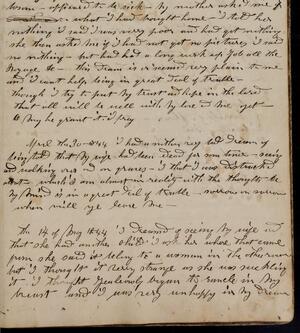 down - appeared to be sick - my mother asked me
what I had brought home - I told her
nothing I said I was very poor and had got nothing
she then asked me if I had not got no pictures I said
no nothing - but had had to work up for all the
this dream is very plain to me
and I cant help being in great deal of trouble -
though I try to put my trust and hope in the lord
that all will be well with my love and me yet -
May he grant it I pray
April the 30 - 1844 I had another very bad dream of
being told that my wife had been dead for some time - seeing
and walking over and on graves - & that I was distracted
that which I am almost in reality with the thoughts &c
My mind is in a great deal of trouble - sorrow on sorrow
when will ye leave me -
The 14 of Aug 1844 I dreamed of seeing my wife and
that she had another child I ask her whose that came
from she said it belong to a woman in the other room
but I thought it very strange as she was suckling
it I thought Jealousy began to rankle in my
breast and I was very unhappy in my dream